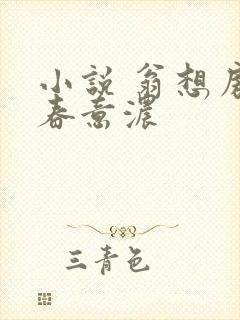 小説 翁想
春意濃
三青色